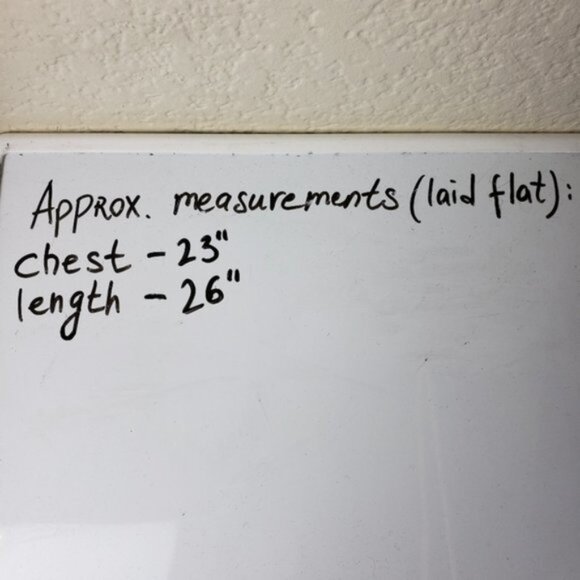 Approx. measurements (laid flat):
chest - 23"
length - 26"